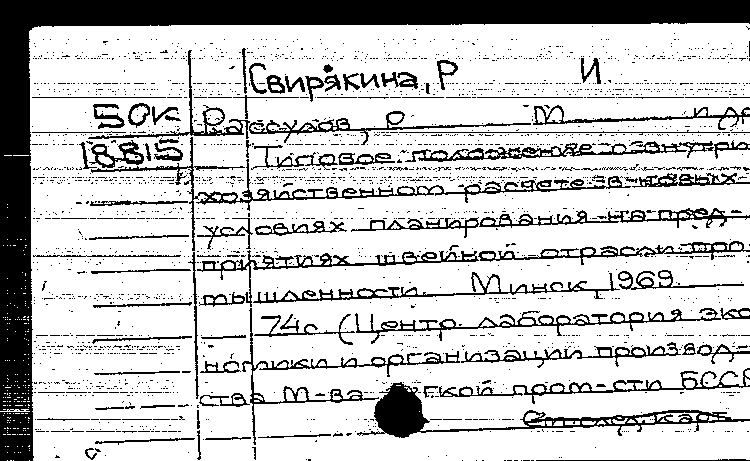 Свирякина, Р И.
50К Рассулов, Р М и др
18815 Типовое положение о внутри-
хозяйственном расчете в новых
условиях планирования на пред-
приятиях швейной отрасли про-
мышленности. Минск, 1969.
74с. (Центр. лаборатория эко-
номики и организации производ-
ства М-ва легкой пром-сти БССР
См. след. карт.